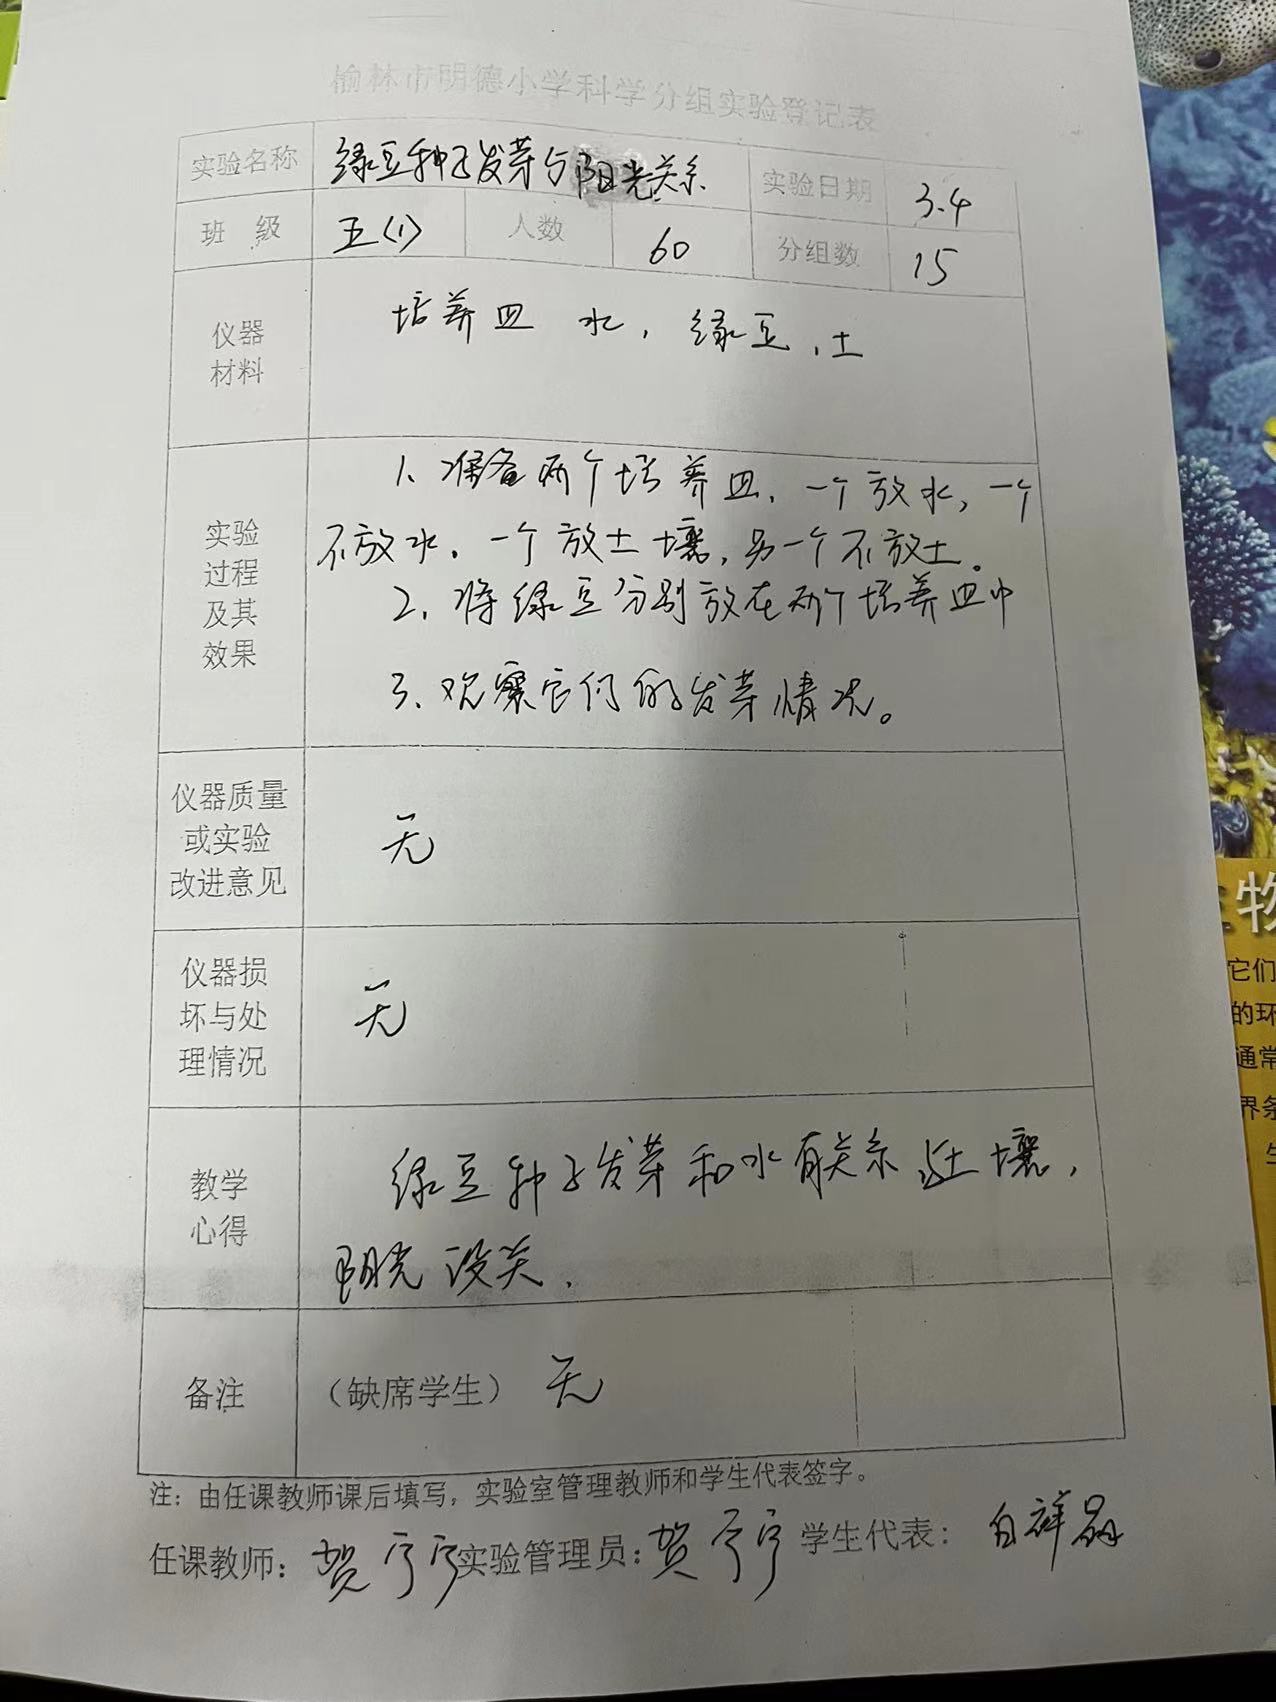 榆林市明德小学科学分组实验登记表
实验名称 绿豆种子发芽与阳光关系 实验日期 3.4
班 级 五(1) 人数 60 分组数 15
仪器
材料
培养皿 水, 绿豆,土
实验
过程
及其
效果
1、准备两个培养皿,一个放水,一个
不放水.一个放土壤,另一个不放土。
2、将绿豆分别放在两个培养皿中
3、观察它们的发芽情况。
仪器质量
或实验
改进意见
无
仪器损
坏与处
理情况
无
教学
心得
绿豆种子发芽和水有关系,与土壤,
阳光没关.
备注
(缺席学生) 无
注:由任课教师课后填写,实验室管理教师和学生代表签字。
任课教师:贺宁宁 实验管理员:贺宁宁 学生代表:白祥
物
它们
的环
通常
界条
生